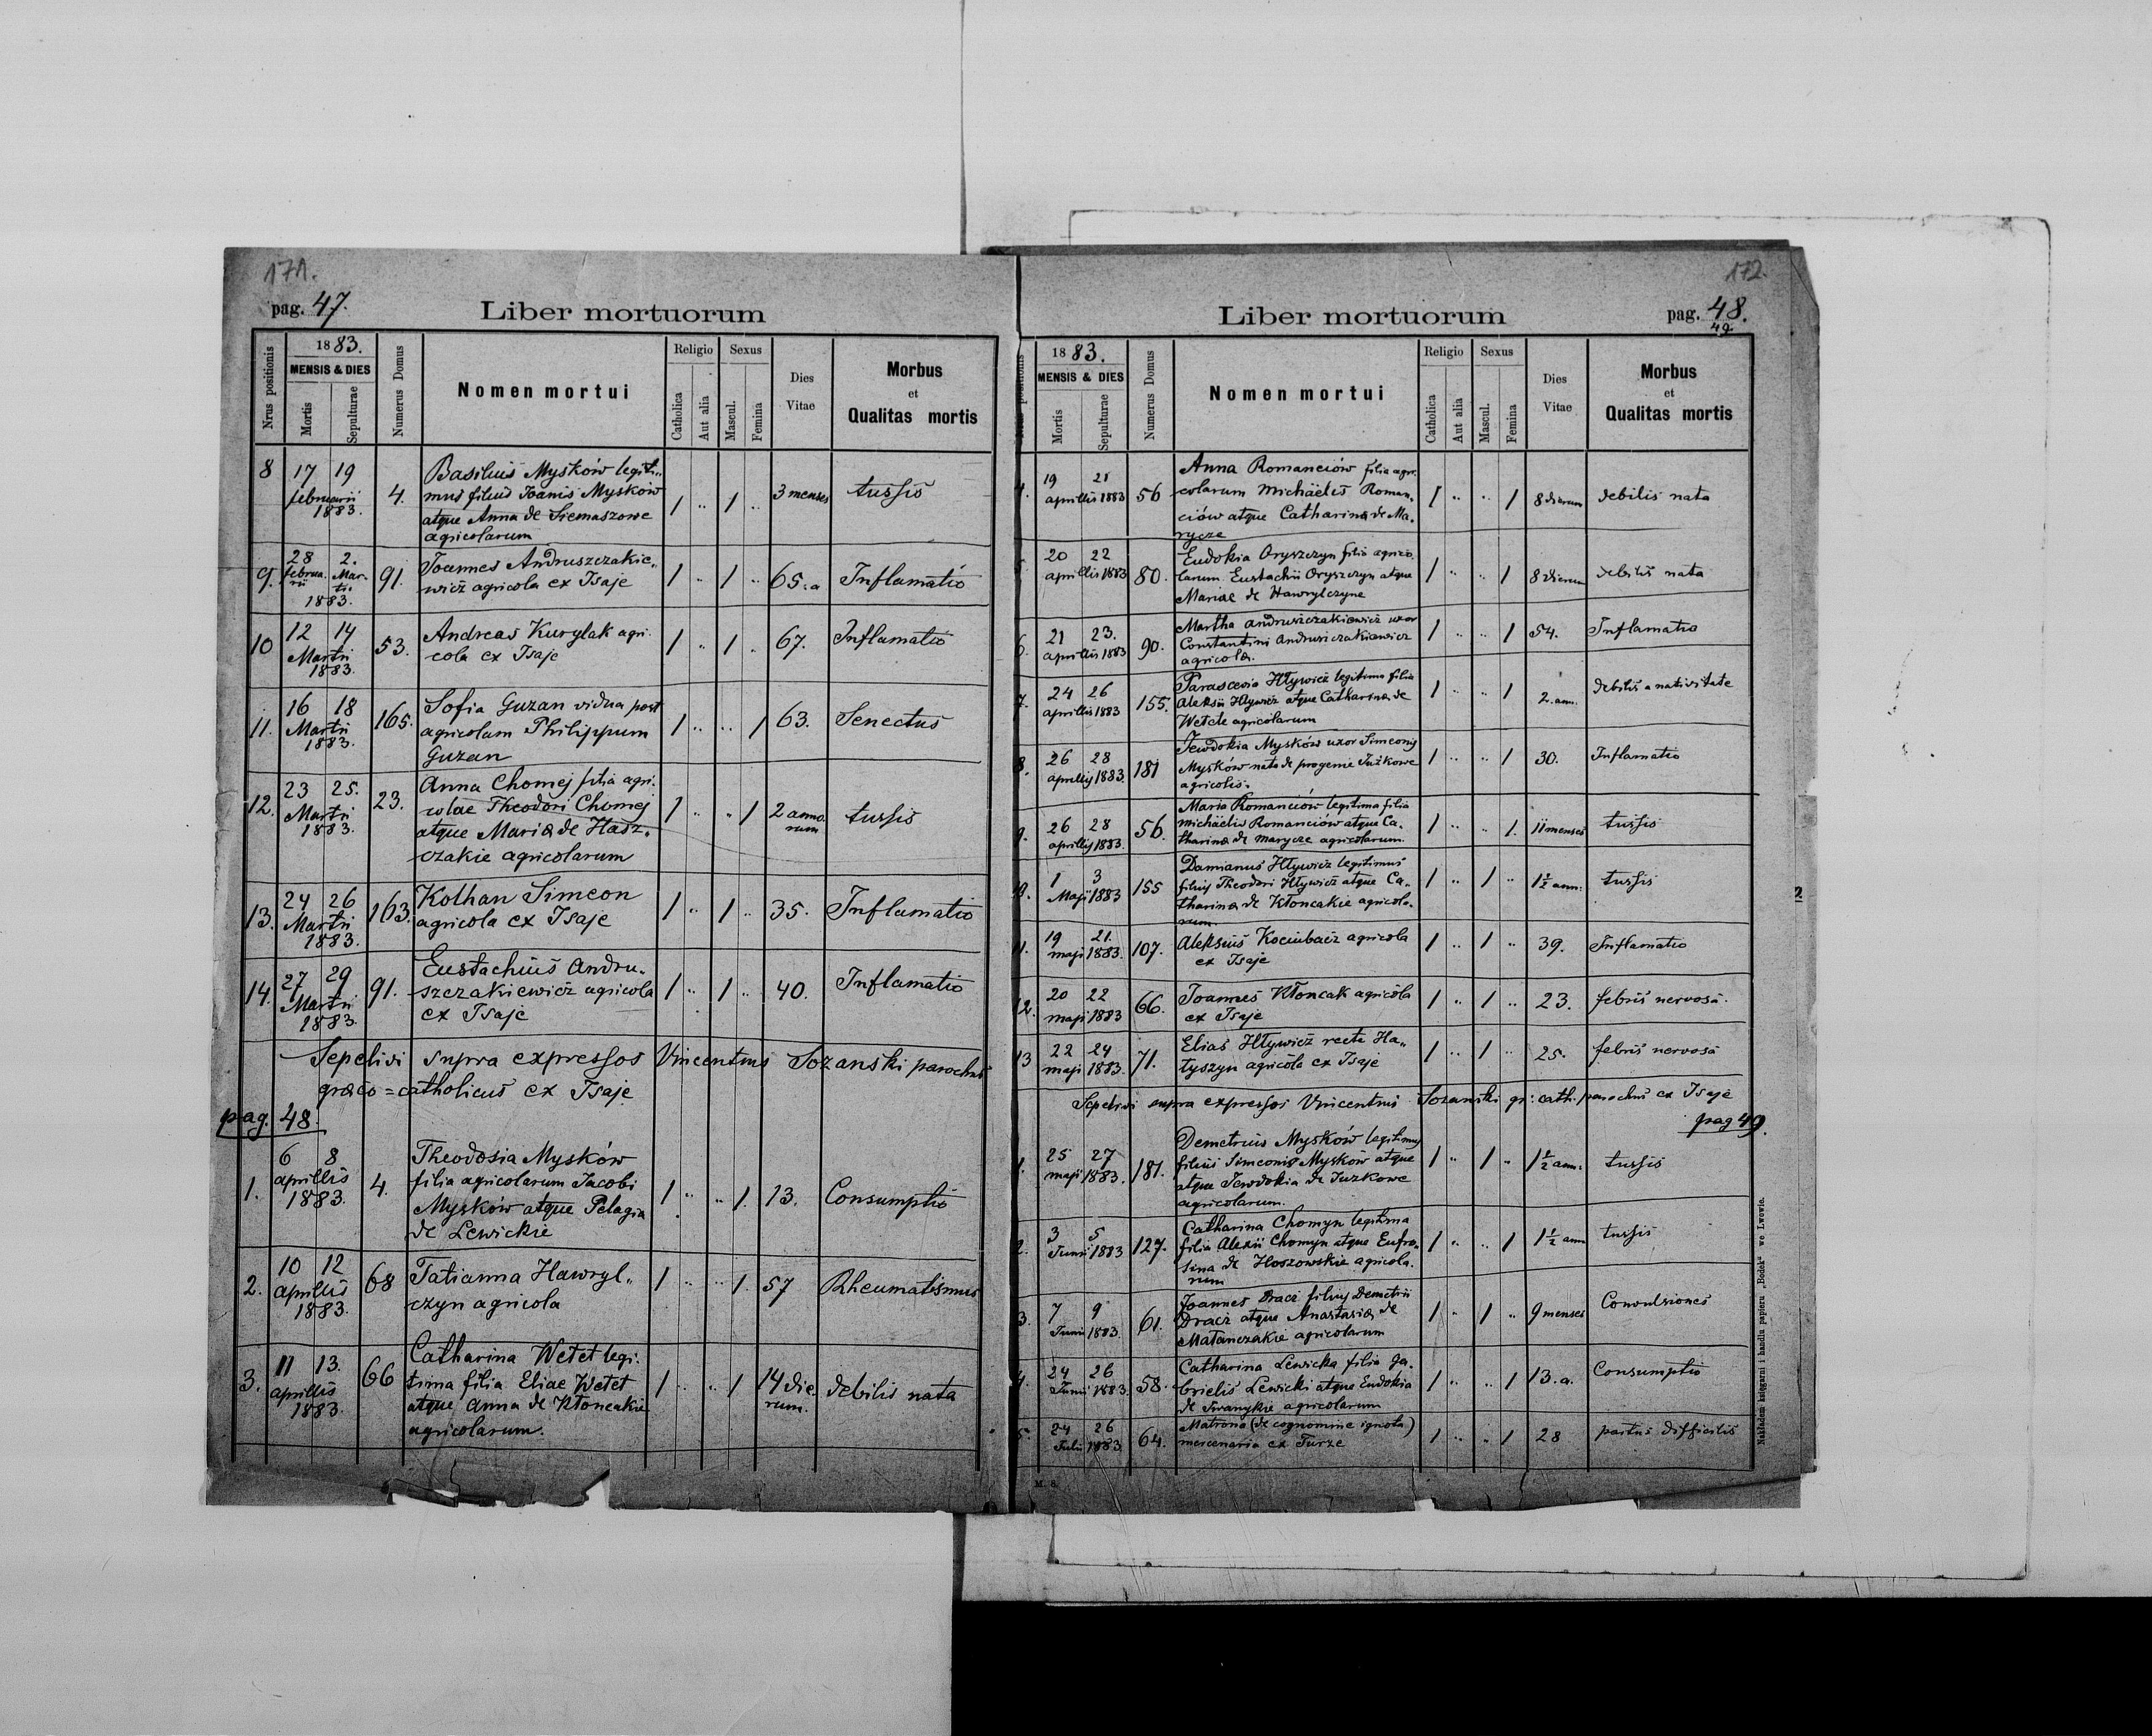 171.
pag. 47.
Liber mortuorum
Nrus positionis
1883.
MENSIS & DIES
Mortis
Sepulturae
Numerus Domus
Nomen mortui
Religio
Catholica
Aut alia
Sexus
Mascul.
Femina
Dies
Vitae
Morbus
et
Qualitas mortis
8 17 19 4. Basilius Mysków legiti„ 1 „ 1 „ 3 menses tussis
februarii mus filius Joanis Mysków
1883. atque Anna de Siemaszowe
agricolarum
9. 28 2. 91. Joannes Andruszczakie„ 1 „ 1 „ 65. a Inflamatio
februa. Mar- wicz agricola ex Isaje
rii tii
1883.
10 12 14 53. Andreas Kurylak agri. 1 „ 1 „ 67. Inflamatio
Martii cola ex Isaje
1883.
11. 16 18 165. Sofia Guzan vidua post 1 „ „ 1 63. Senectus
Martii agricolam Philippum
1883. Guzan
12. 23 25. 23. Anna Chomej filia agri. 1 „ „ 1 2 anno tussis
Martii colae Theodori Chomej rum
1883. atque Maria de Hasz-
czakie agricolarum
13. 24 26 163. Kolhan Simeon 1 „ 1 „ 35. Inflamatio
Martii agricola ex Isaje
1883.
14. 27 29 91. Eustachius Andru- 1 „ 1 „ 40. Inflamatio
Martii szczakiewicz agricola
1883. ex Isaje
Sepelivi supra expressos Vincentius Sozanski parochus
graeco=catholicus ex Isaje
pag. 48.
1. 6 8 4. Theodosia Mysków 1 „ „ 1. 13. Consumptio
aprillis filia agricolarum Jacobi
1883. Mysków atque Pelagia
de Lewickie
2. 10 12 68 Tatianna Hawryl„ 1 „ „ 1. 57 Rheumatismus
aprillis czyn agricola
1883.
3. 11 13. 66 Catharina Wetet legi. 1 „ „ 1 14 die- debilis nata
aprillis tima filia Eliae Wetet rum.
1883. atque Anna de Kłoncakie
agricolarum.
172.
Liber mortuorum
pag. 48.
49
Nrus positionis
1883.
MENSIS & DIES
Mortis
Sepulturae
Numerus Domus
Nomen mortui
Religio
Catholica
Aut alia
Sexus
Mascul.
Femina
Dies
Vitae
Morbus
et
Qualitas mortis
4. 19 21 56 Anna Romanciów filia agri- 1 „ „ 1 8 dierum debilis nata
aprillis 1883 colarum Michäelis Roman„
ciów atque Catharina de Ma„
rycze
5. 20 22 80. Eudokia Oryszczyn filia agrico„ 1 „ „ 1 8 dierum debilis nata
aprillis 1883 larum Eustachii Oryszczyn atque
Mariae de Hawrylczyne
6. 21 23. 90. Martha Andruszczakiewicz uxor 1 „ „ 1 54. Inflamatio
aprillis 1883 Constantini Andruszczakiewicz
agricola.
7. 24 26 155. Parascevia Hływicz legitima filia 1 „ „ 1 2. ann. debilis a nativitate
aprillis 1883 Aleksii Hływicz atque Catharina de
Wetete agricolarum
8. 26 28 181 Jewdokia Mysków uxor Simeonis 1 „ „ 1 30. Inflamatio
aprillis 1883. Mysków nata de progenie Juzkowe
agricolis.
9. 26 28 56. Maria Romanciów legitima filia 1 „ „ 1. 11 menses tussis
aprillis 1883. Michäelis Romanciów atque Ca„
tharina de Marycze agricolarum.
10. 1 3 155 Damianus Hływicz legitimus 1 „ 1 „ 1½ ann: tussis
Maji 1883 filius Theodori Hływicz atque Ca„
tharina de Kłoncakie agricola„
rum
11. 19 21. 107. Aleksius Kociubacz agricola 1 „ 1 „ 39. Inflamatio
maji 1883. ex Isaje
12. 20 22 66. Joannes Kłoncak agricola 1 „ 1 „ 23. febris nervosa.
maji 1883 ex Isaje
13 22 24 71. Elias Hływicz recte Ha„ 1 „ 1 „ 25. febris nervosa
maji 1883. tyszyn agricola ex Isaje
Sepelivi supra expressos Vincentius Sozanski gr: cath: parochus ex Isaje
pag 49.
1. 25 27 181. Demetrius Mysków legitimus 1 „ 1 „ 1½ ann: tussis
maji 1883. filius Simeonis Mysków atque
atque Jewdokia de Juzkowe
agricolarum.
2. 3 5 127. Catharina Chomyn legitima 1 „ „ 1 1½ ann tussis
Junii 1883 filia Alexii Chomyn atque Eufro„
sina de Hoszowskie agricola.
rum
3. 7 9 61. Joannes Dracz filius Demetrii 1 „ 1 „ 9 menses Convulsiones
Junii 1883. Dracz atque Anastasia de
Matanczakie agricolarum
4. 24 26 58. Catharina Lewicka filia Ga„ 1 „ „ 1 13. a. Consumptio
Junii 1883. brielis Lewicki atque Eudokia
de Iwanykie agricolarum
5. 24 26 64. Matrona (de cognomine ignota) 1 „ „ 1 28 partus difficilis
Julii 1883. mercenaria ex Turze
M. 8.
Nakładem księgarni i handlu papieru „Bodek“ we Lwowie.
2